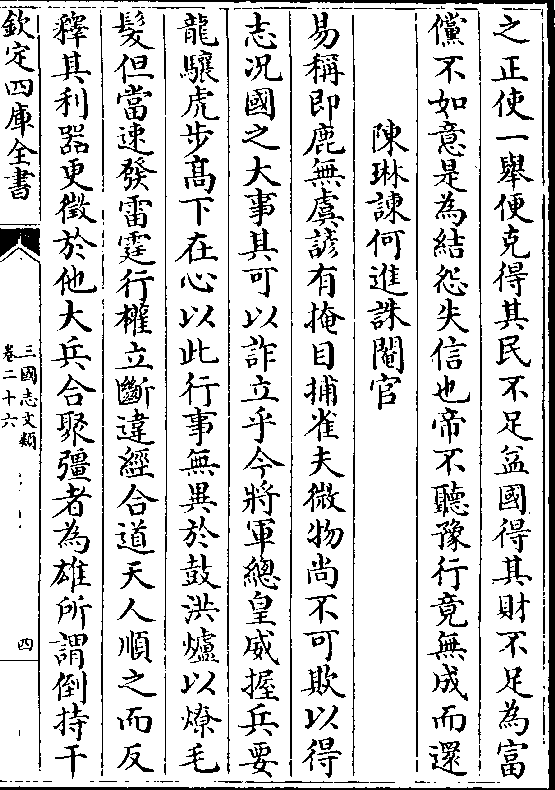 之正使一舉便克得其民不足益國得其財不足為富
儻不如意是為結怨失信也帝不聽豫行竟無成而還
陳琳諫何進誅閹官
易稱即鹿無虞諺有掩目捕雀夫微物尚不可欺以得
志况國之大事其可以詐立乎今將軍總皇威握兵要
龍驤虎步髙下在心以此行事無異於鼓洪爐以燎毛
髮但當速發雷霆行權立斷違經合道天人順之而反
釋其利器更徵於他大兵合聚彊者為雄所謂倒持干
欽定四庫全書
三國志文類
卷二十六
四